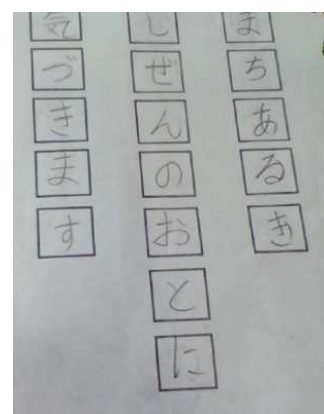 まちあるき
しぜんのおとに
気づきます